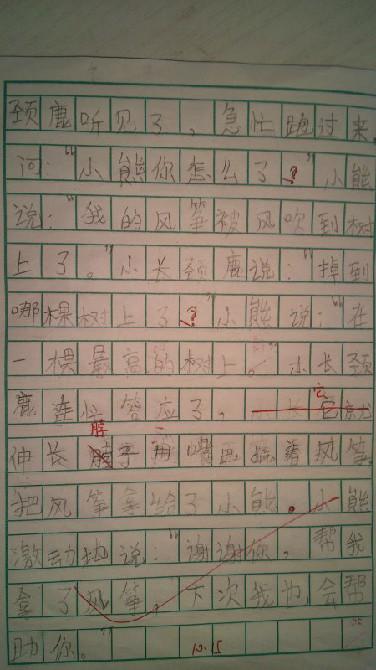 颈鹿听见了，急忙跑过来
问：“小熊你怎么了？”小熊
说：“我的风筝被风吹到树
上了。”小长颈鹿说：“掉到
哪棵树上了？”小熊说：“在
一棵最高的树上。”小长颈
鹿连忙答应了。它就
伸长脖子用嘴巴风筝。
把风筝拿给了小熊。小熊
激动地说：“谢谢你，帮我
拿了风筝，下次我也会帮
助你。”
10.15